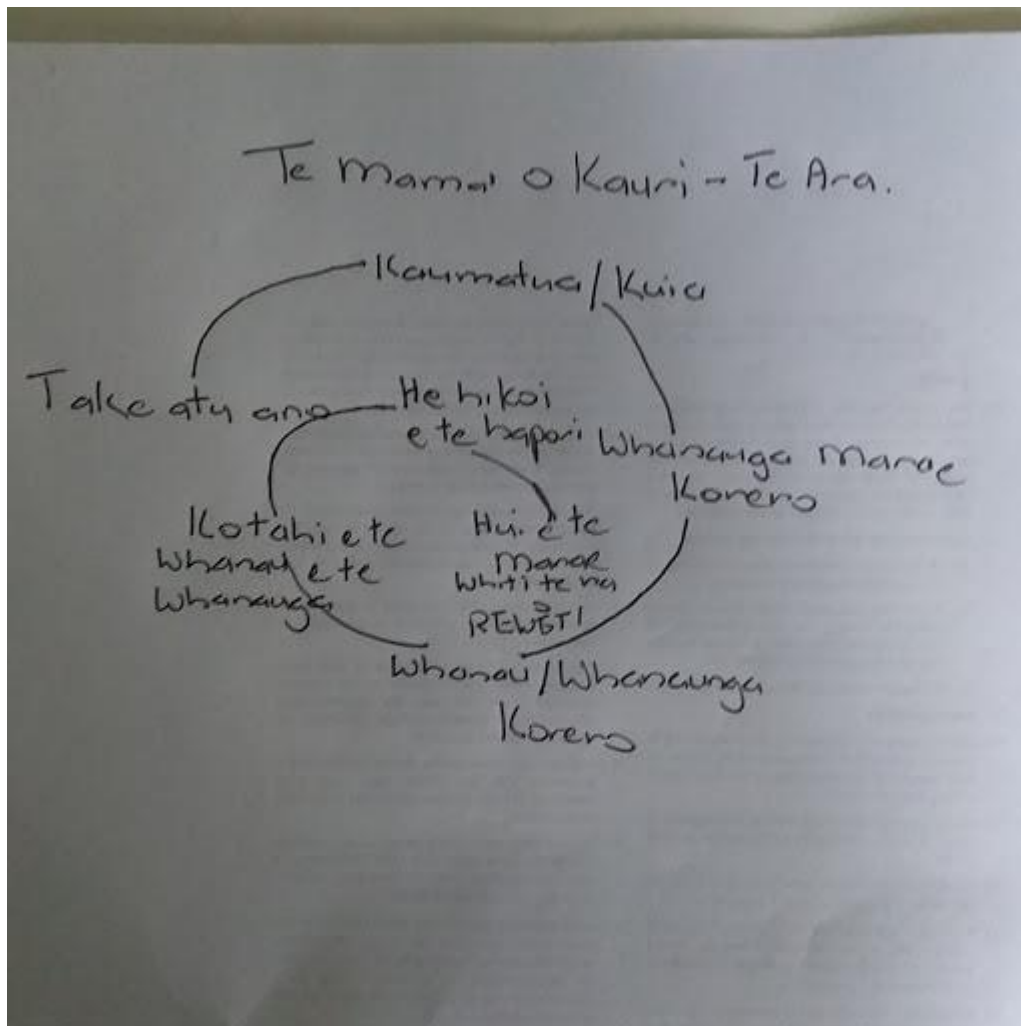 Te mamai o Kauri - Te Ara.
Kaumatua/Kuia
Take atu ano
He hikoi
e te hapori
Whananga Marae
Korero
Kotahi e te
Whanau e te
Whanauga
Hui e te
Marae
Whiti te ra
REWETI
Whanau/Whanaunga
Korero